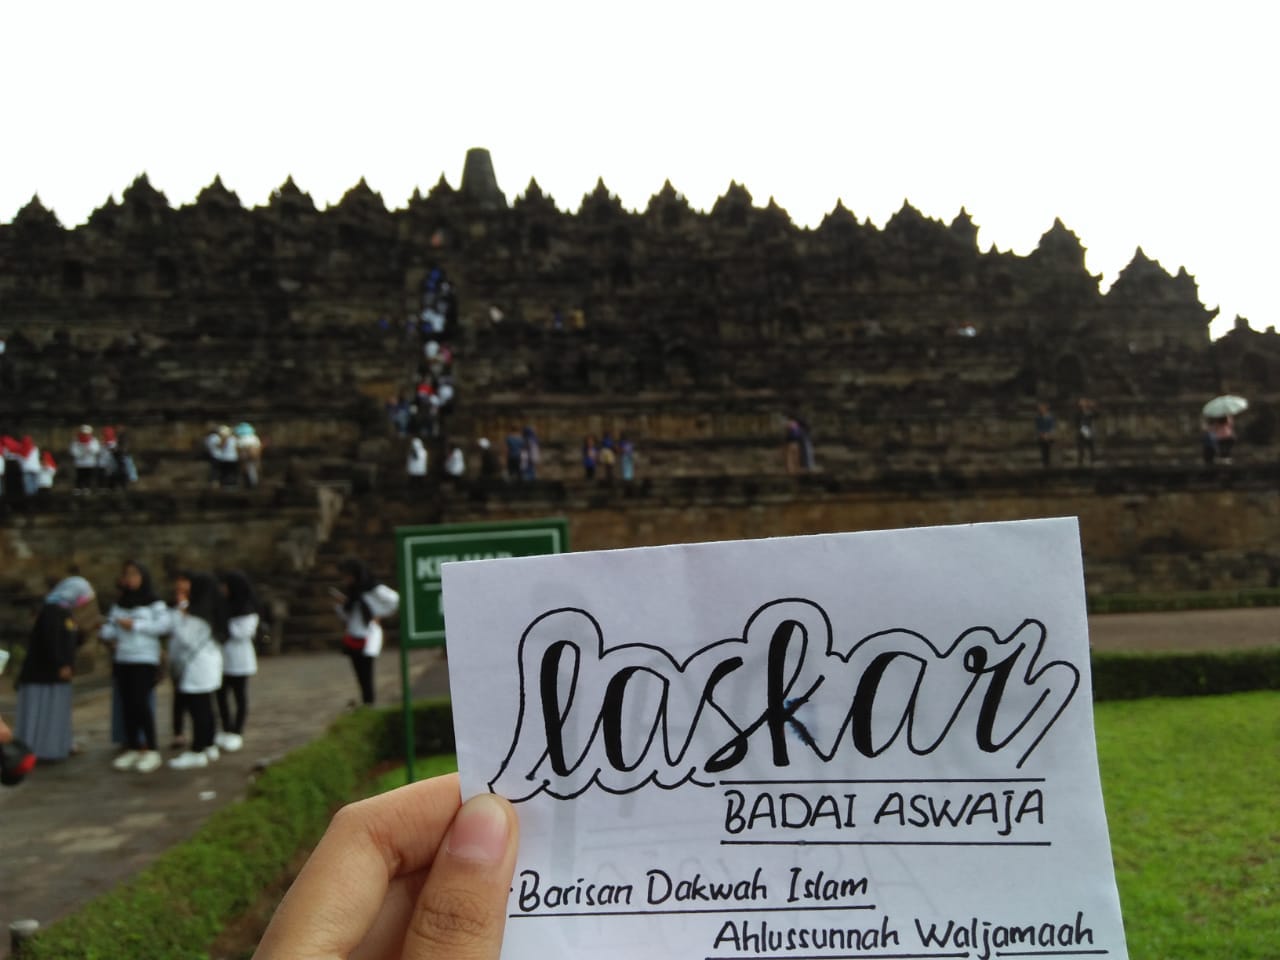 laskar
BADAI ASWAJA
Barisan Dakwah Islam
Ahlussunnah Waljamaah